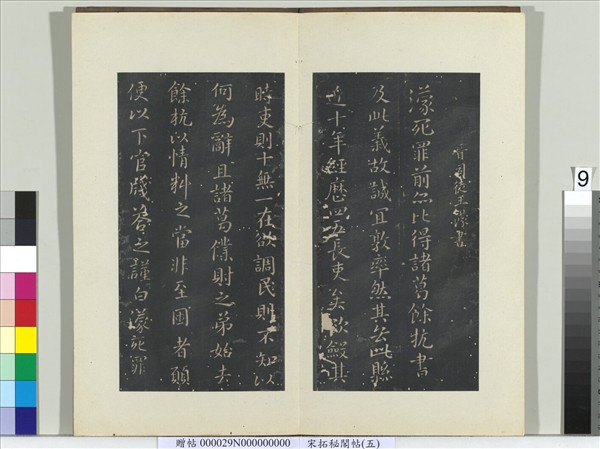 晉司徒王濛書
濛死罪前〻比得諸葛餘杭書
及此義故誠宜敦率然其去此縣
近十年經歷四五長吏矣欲鰥其
時吏則十無一在欲調民則不知以
何為辭且諸葛僕射之弟始去
餘杭以情料之當非至困者願
便以下官牋答之謹白濛死罪
9
贈帖 000029N000000000 宋拓秘閣帖(五)